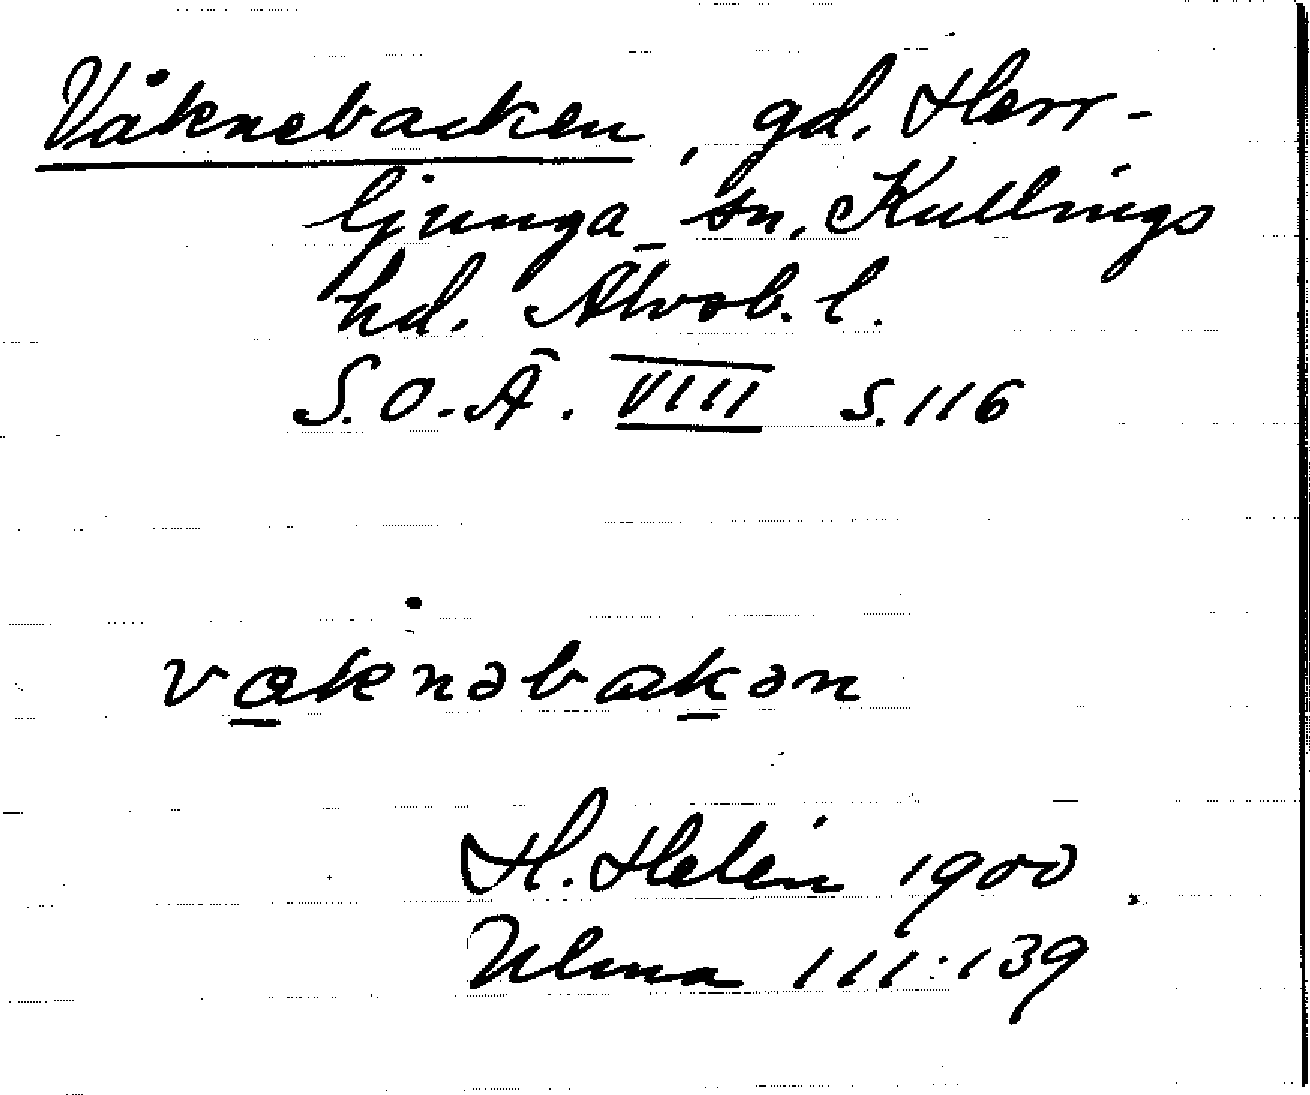 Våknebacken, gd. Herr-
ljunga sn, Kullings
hd. Älvsb. l.
S.O.Ä. VIII s. 116
våknəbakən
H. Helin 1900
Ulma 111:139